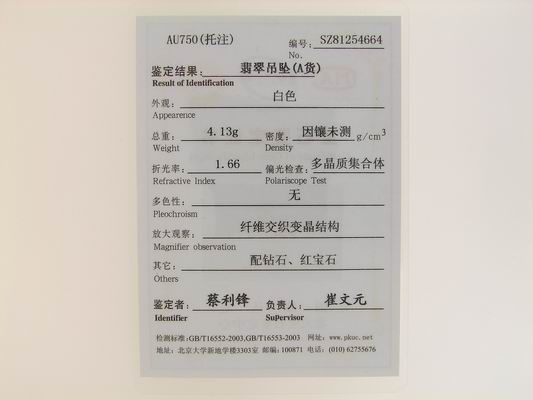 AU750(托注)
编号: SZ81254664
No.
鉴定结果: 翡翠吊坠(A货)
Result of Identification
外观: 白色
Appearance
总重: 4.13g 密度: 因镶未测 g/cm³
Weight Density
折光率: 1.66 偏光检查: 多晶质集合体
Refractive Index Polariscope Test
多色性: 无
Pleochroism
放大观察: 纤维交织变晶结构
Magnifier observation
其它: 配钻石、红宝石
Others
鉴定者: 蔡利锋 负责人: 崔文元
Identifier Supervisor
检测标准:GB/T16552-2003,GB/T16553-2003 网址: www.pkuc.net
地址: 北京大学新地学楼3303室 邮编: 100871 电话: (010) 62755676